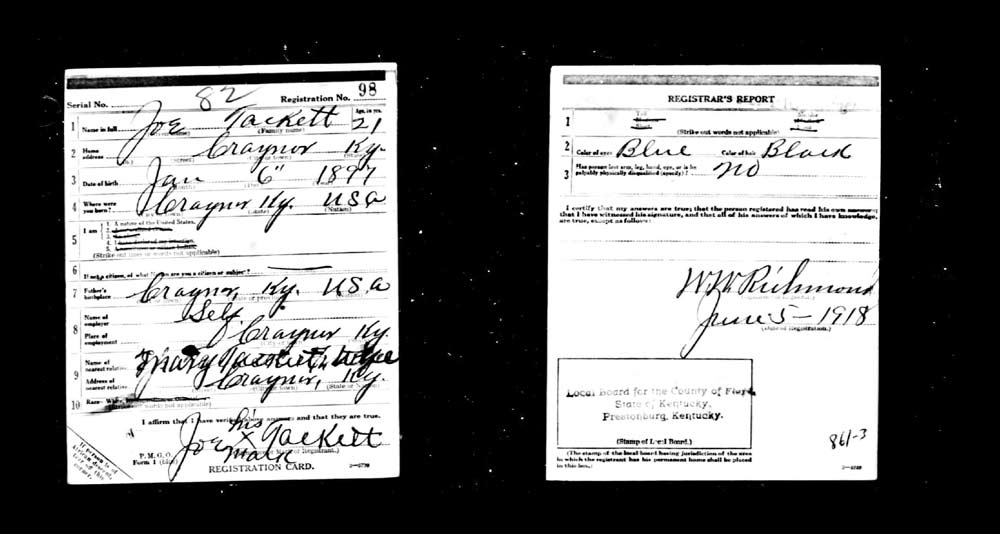 Serial No. 82 Registration No. 98
1 Name in full Joe Tackett Age, in yrs. 21
(Family name)
2 Home address Craynor Ky.
3 Date of birth Jan 6" 1897
4 Where were you born? Craynor Ky. USA
(State) (Nation)
5 I am 1. A native of the United States.
(Strike out lines or words not applicable)
6 If not a citizen, of what Nation are you a citizen or subject?
7 Father's birthplace Craynor, Ky. USA
(Nation)
8 Name of employer Self
Place of employment Craynor Ky.
9 Name of nearest relative Mary Tackett,
Address of nearest relative Craynor, Ky.
10 Race— White,
I affirm that I have verified above answers and that they are true.
his
Joe X Tackett
mark
P. M. G. O.
Form 1
REGISTRATION CARD.
If person is of African descent, tear off this corner.
REGISTRAR'S REPORT
1 Tall Slender
(Strike out words not applicable)
2 Color of eyes Blue Color of hair Black
3 Has person lost arm, leg, hand, eye, or is he
palpably physically disqualified (specify)? no
I certify that my answers are true; that the person registered has read his own answers;
that I have witnessed his signature, and that all of his answers of which I have knowledge,
are true, except as follows:
W W Richmond
June 5 - 1918
(Date of Registration.)
Local Board for the County of Floyd,
State of Kentucky,
Prestonburg, Kentucky.
(Stamp of Local Board.)
861-3
(The stamp of the local board having jurisdiction of the area
in which the registrant has his permanent home shall be placed
in this box.)